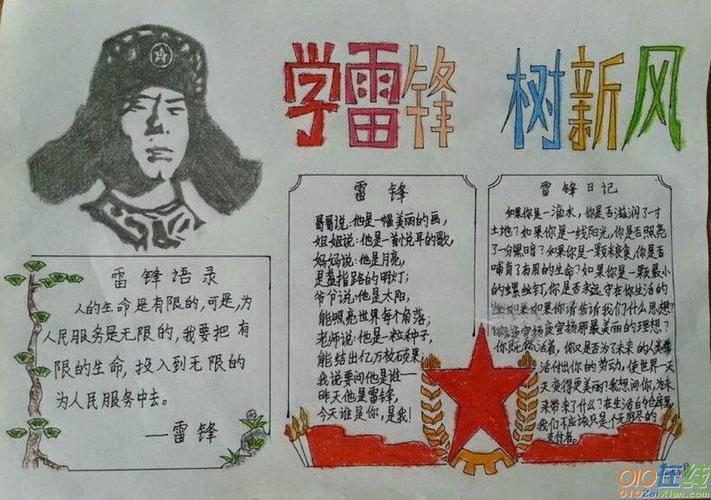 学雷锋 树新风
雷锋语录
人的生命是有限的,可是,为
人民服务是无限的,我要把有
限的生命,投入到无限的
为人民服务中去。
—雷锋
雷锋
哥哥说:他是一幅美丽的画,
姐姐说:他是一首悦耳的歌,
妈妈说:他是月亮,
是盏指路的明灯;
爷爷说:他是太阳,
能照亮世界每个角落;
老师说:他是一粒种子,
能结出亿万枚硕果;
我说要问他是谁—
昨天他是雷锋,
今天谁是你,是我!
雷锋日记
如果你是一滴水,你是否滋润了一寸
土地?如果你是一线阳光,你是否照亮
了一分黑暗?如果你是一颗粮食,你是否
哺育了有用的生命?如果你是一颗最小
的螺丝钉,你是否永远守在你生活的
如果你要告诉我们什么思想?
你是否宣扬那最美丽的理想?
你既然活着,你又是否为了未来的人类
付出你的劳动,使世界一天
天变得更美丽?我想问你,为未
来带来了什么?在生活的仓库里,
我们不应该只是个无穷尽的
支付者。
010在线
010ZaiXian.com